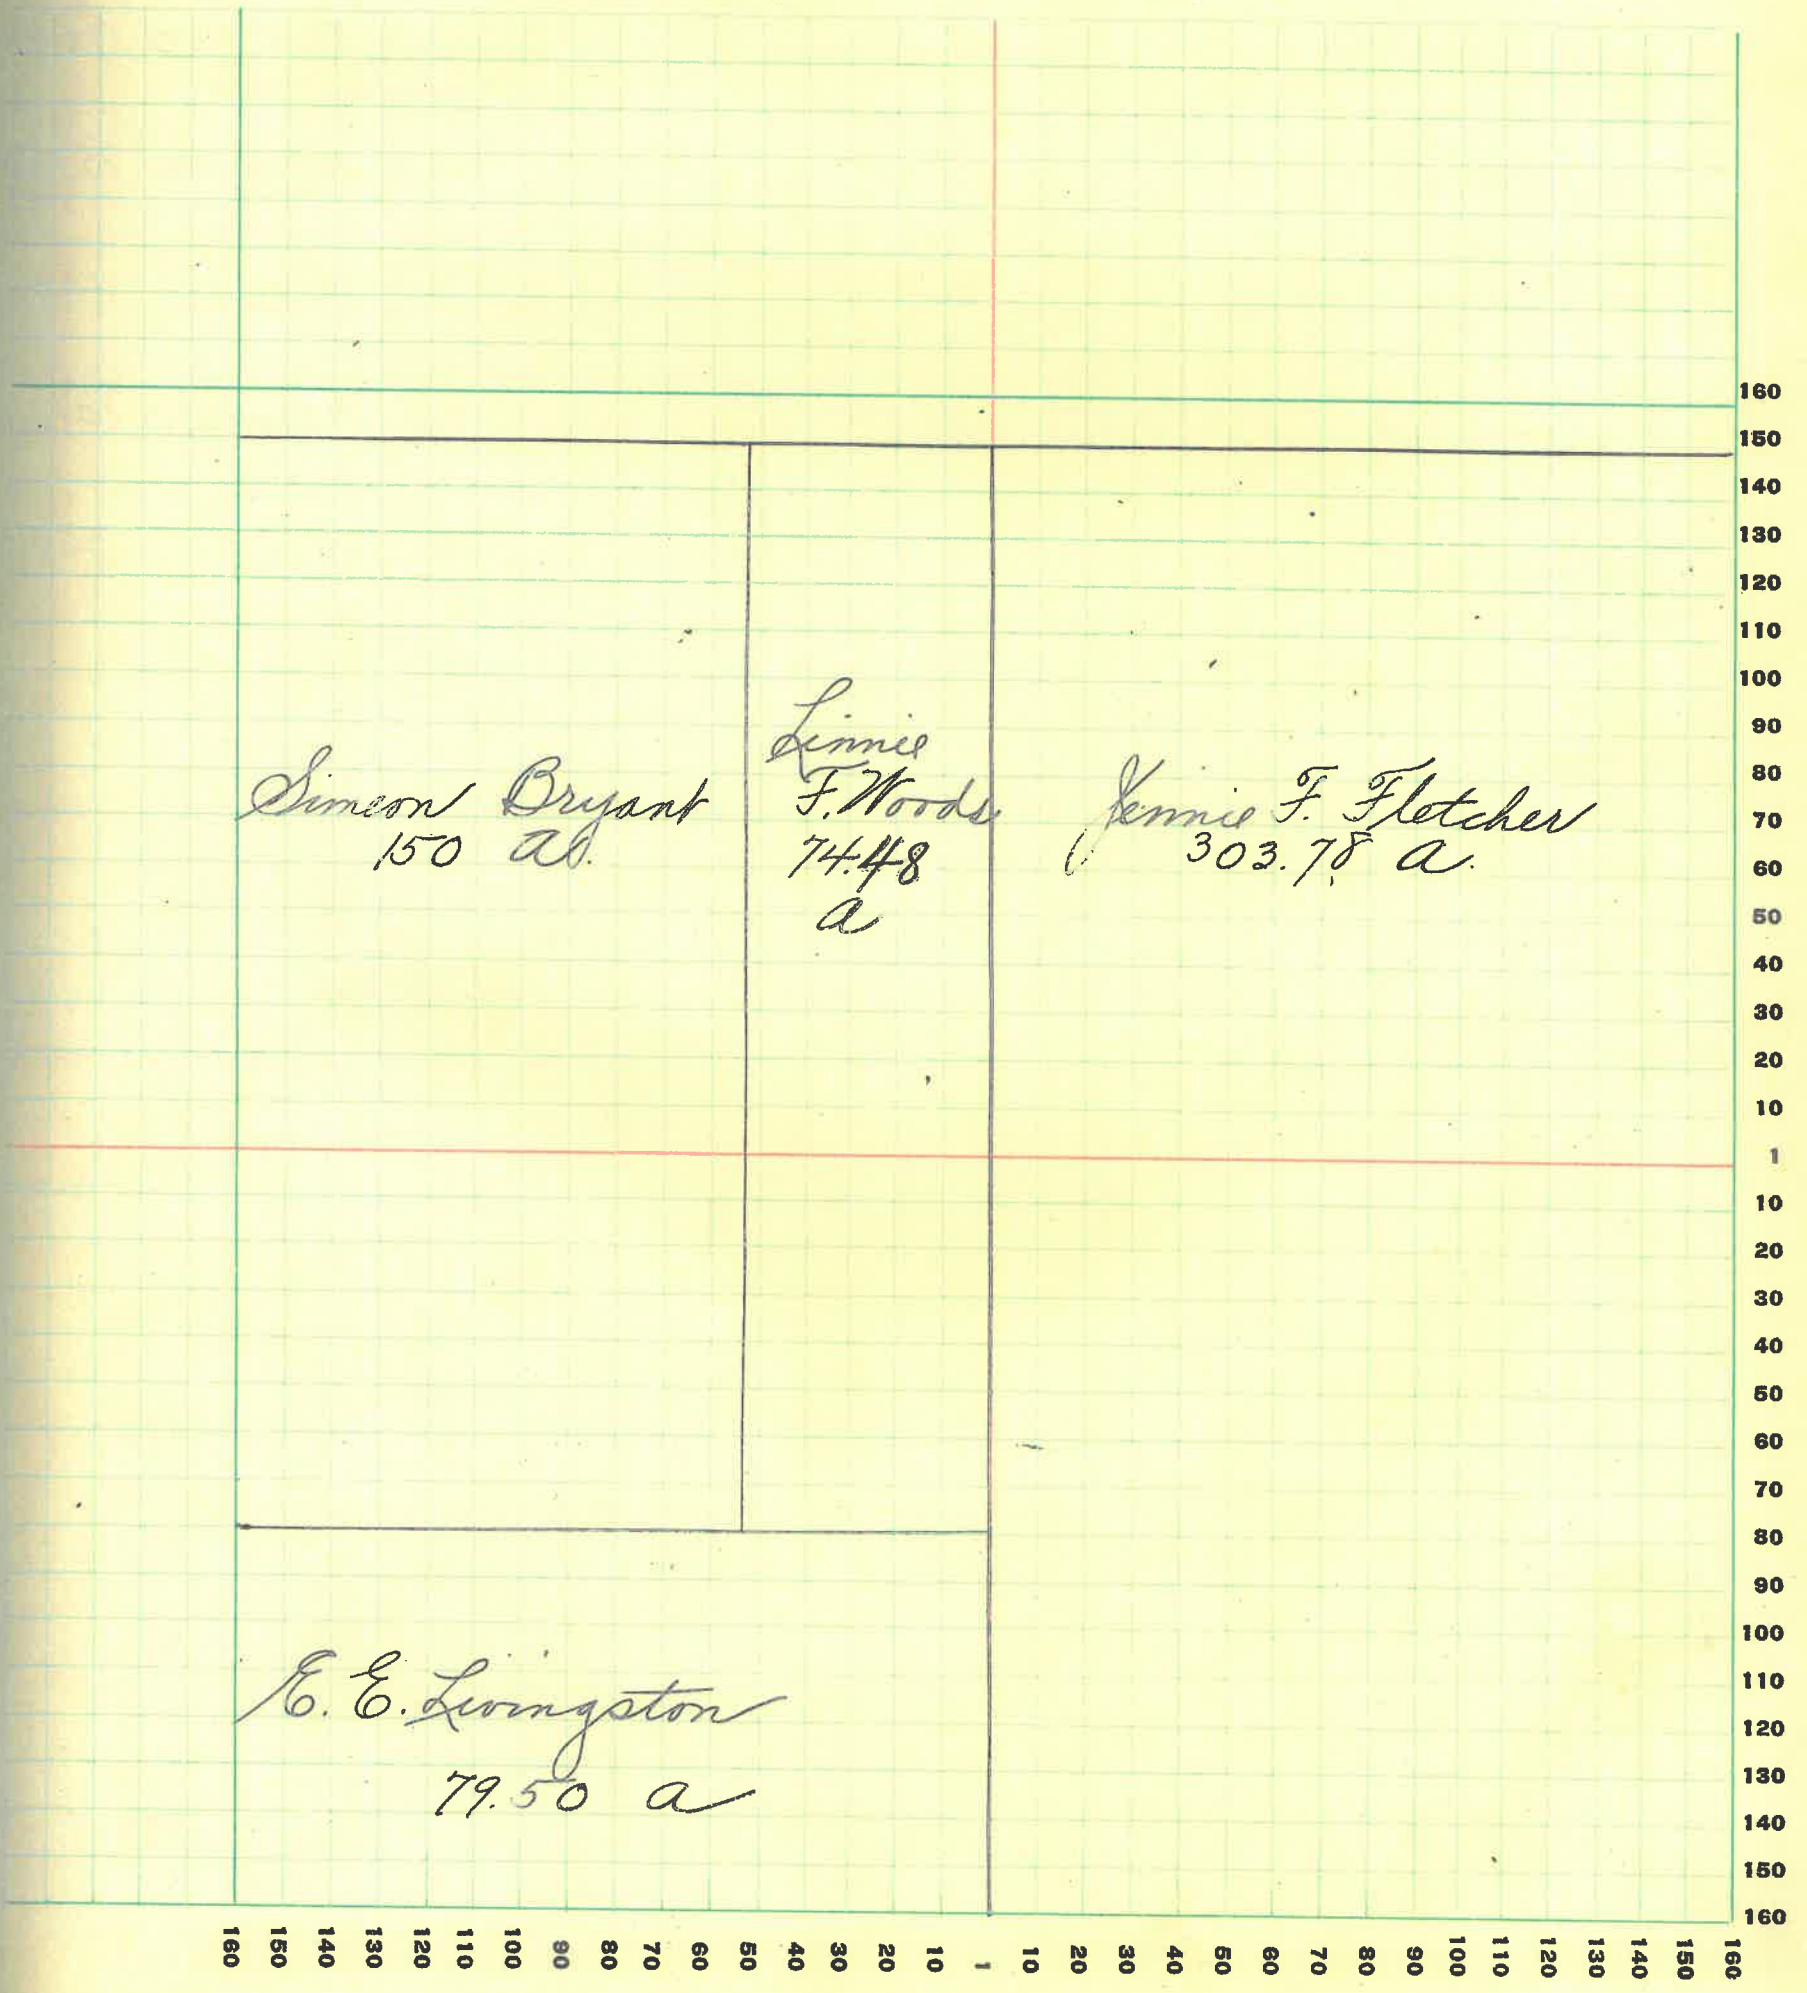 Simeon Bryant
150 as.
Linnie
F. Woods
74.48
a
Jennie F. Fletcher
303.78 a.
E. E. Livingston
79.50 a
160
150
140
130
120
110
100
90
80
70
60
50
40
30
20
10
1
10
20
30
40
50
60
70
80
90
100
110
120
130
140
150
160
160 150 140 130 120 110 100 90 80 70 60 50 40 30 20 10 1 10 20 30 40 50 60 70 80 90 100 110 120 130 140 150 160